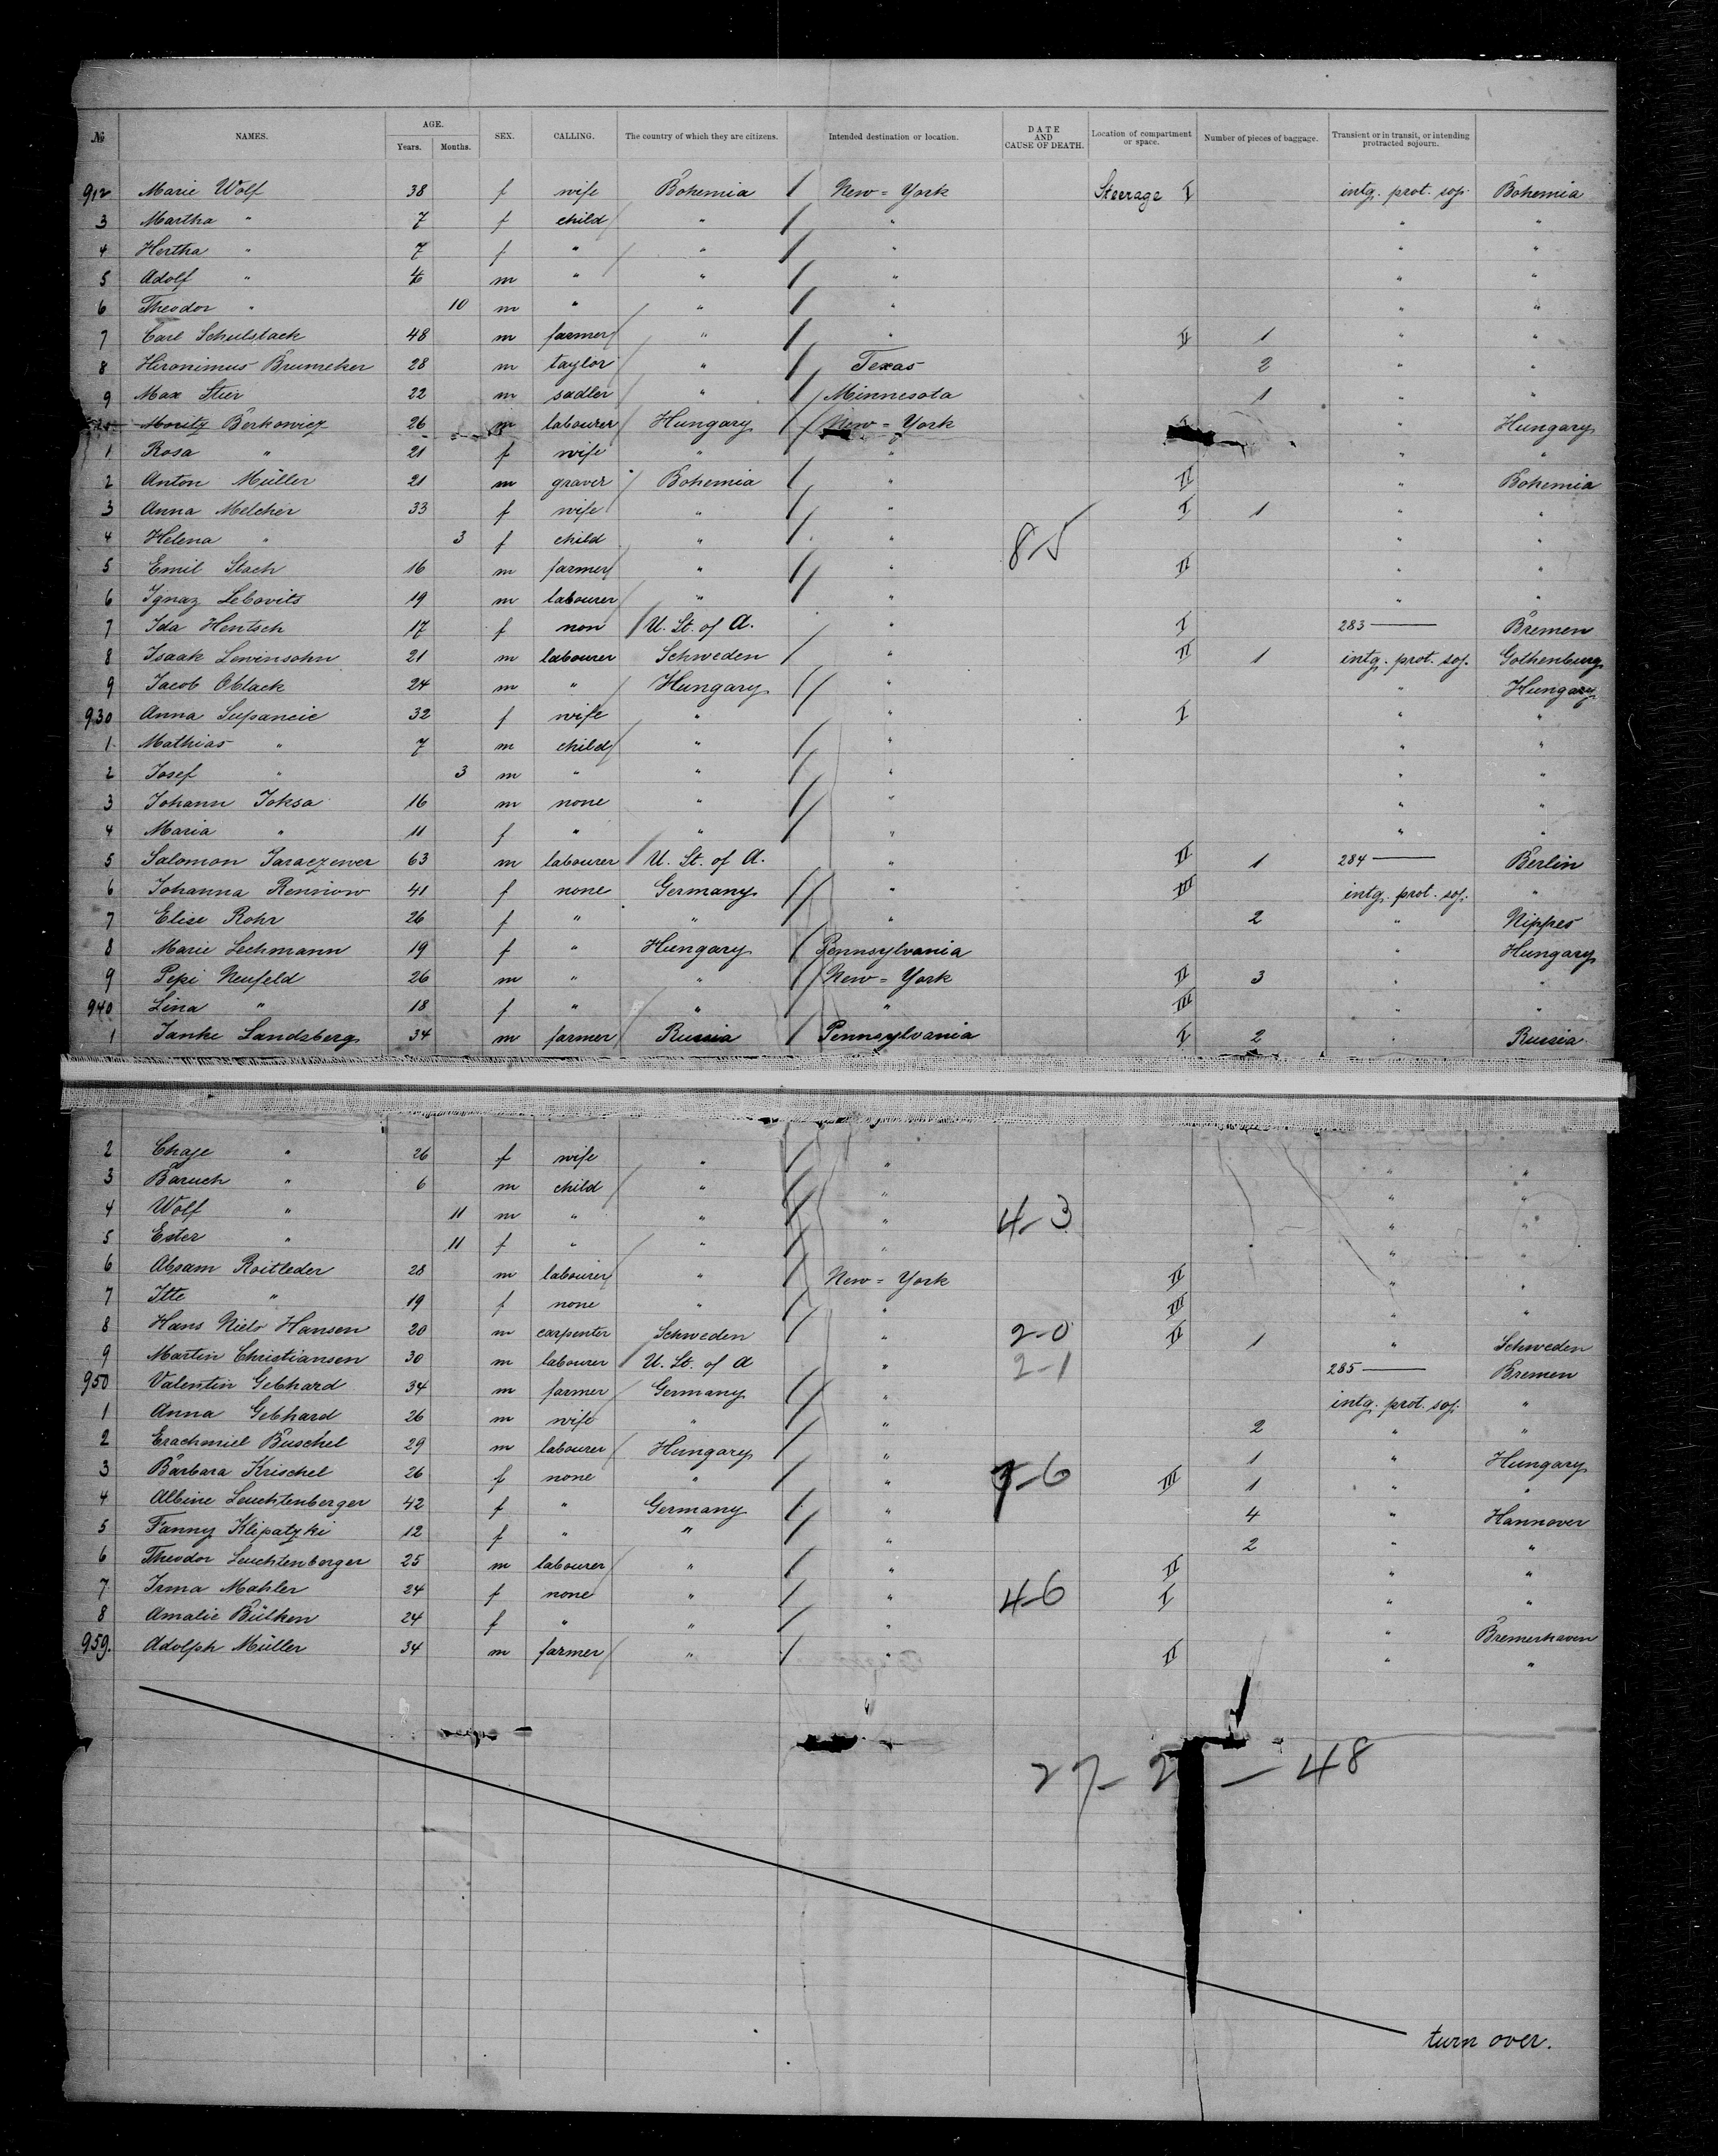 № NAMES. AGE. Years. Months. SEX. CALLING. The country of which they are citizens. Intended destination or location. DATE AND CAUSE OF DEATH. Location of compartment or space. Number of pieces of baggage. Transient or in transit, or intending protracted sojourn.
912 Marie Wolf 38 f wife Bohemia / New=York Steerage I intg. prot. soj. Bohemia
3 Martha " 7 f child " / " " "
4 Hertha " 7 f " " / " " "
5 Adolf " 4 m " " / " " "
6 Theodor " 10 m " " / " " "
7 Carl Schulstack 48 m farmer " / " II 1 " "
8 Hironimus Brumeker 28 m taylor " / Texas 2 " "
9 Max Stier 22 m sadler " / Minnesota 1 " "
Moritz Berkowicz 26 m labourer Hungary / New=York " Hungary
1 Rosa " 21 f wife " / " " "
2 Anton Müller 21 m graver Bohemia / " II " Bohemia
3 Anna Melcher 33 f wife " / " I 1 " "
4 Helena " 3 f child " / " 8-5 " "
5 Emil Stach 16 m farmer " / " II " "
6 Ignaz Lebovits 19 m labourer " / " " "
7 Ida Hentsch 17 f non U. St. of A. " I 283 — Bremen
8 Isaak Lewinsohn 21 m labourer Schweden / " II 1 intg. prot. soj. Gothenburg
9 Jacob Oblack 24 m " Hungary / " " Hungary
930 Anna Supancic 32 f wife " / " I " "
1 Mathias " 7 m child " / " " "
2 Josef " 3 m " " / " " "
3 Johann Joksa 16 m none " / " " "
4 Maria " 11 f " " / " " "
5 Salomon Jaraczewer 63 m labourer U. St. of A. " II 1 284 — Berlin
6 Johanna Rennow 41 f none Germany / " III intg. prot. soj. "
7 Elise Rohr 26 f " " / " 2 " Nippes
8 Marie Lechmann 19 f " Hungary / Pennsylvania " Hungary
9 Pepi Neufeld 26 m " " / New=York II 3 " "
940 Lina " 18 f " " / " III " "
1 Janke Landsberg 34 m farmer Russia / Pennsylvania I 2 " Russia
2 Chaje " 26 f wife " / " " "
3 Baruch " 6 m child " / " " "
4 Wolf " 11 m " " / " 4-3 " "
5 Ester " 11 f " " / " " "
6 Abram Roitleder 28 m labourer " / New=York II " "
7 Itte " 19 f none " / " III " "
8 Hans Niels Hansen 20 m carpenter Schweden / " 2-0 II 1 " Schweden
9 Martin Christiansen 30 m labourer U. St. of A " 2-1 285 — Bremen
950 Valentin Gebhard 34 m farmer Germany / " intg. prot. soj. "
1 Anna Gebhard 26 m wife " / " 2 " "
2 Erachmiel Buschel 29 m labourer Hungary / " 1 " Hungary
3 Barbara Krischel 26 f none " / " -6 III 1 " "
4 Albine Leuchtenberger 42 f " Germany / " 4 " Hannover
5 Fanny Klipatzki 12 f " " / " 2 " "
6 Theodor Leuchtenberger 25 m labourer " / " II " "
7 Irma Mahler 24 f none " / " 4-6 I " "
8 Amalie Bütken 24 f " " / " " Bremerhaven
959. Adolph Müller 34 m farmer " / " II " "
27-2 — 48
turn over.